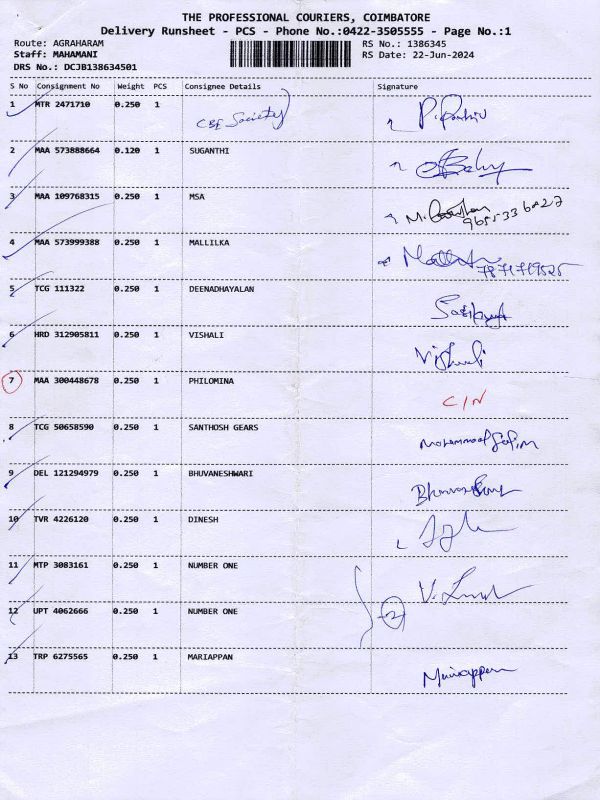 THE PROFESSIONAL COURIERS, COIMBATORE
Delivery Runsheet - PCS - Phone No.:0422-3505555 - Page No.:1
Route: AGRAHARAM RS No.: 1386345
Staff: MAHAMANI RS Date: 22-Jun-2024
DRS No.: DCJB138634501
S No Consignment No Weight PCS Consignee Details Signature
1 MTR 2471710 0.250 1 CBE Society
2 MAA 573888664 0.120 1 SUGANTHI
3 MAA 109768315 0.250 1 MSA
4 MAA 573999388 0.250 1 MALLILKA
5 TCG 111322 0.250 1 DEENADHAYALAN
6 HRD 312905811 0.250 1 VISHALI Vishali
7 MAA 300448678 0.250 1 PHILOMINA C/N
8 TCG 50658590 0.250 1 SANTHOSH GEARS
9 DEL 121294979 0.250 1 BHUVANESHWARI
10 TVR 4226120 0.250 1 DINESH
11 MTP 3083161 0.250 1 NUMBER ONE
12 UPT 4062666 0.250 1 NUMBER ONE 2
13 TRP 6275565 0.250 1 MARIAPPAN